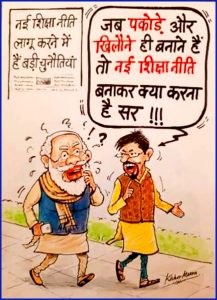 नई शिक्षा नीति
लागू करने में
हैं बड़ी चुनौतियां
जब पकौड़े और
खिलौने ही बनाने हैं
तो नई शिक्षा नीति
बनाकर क्या करना
है सर !!!
! ?